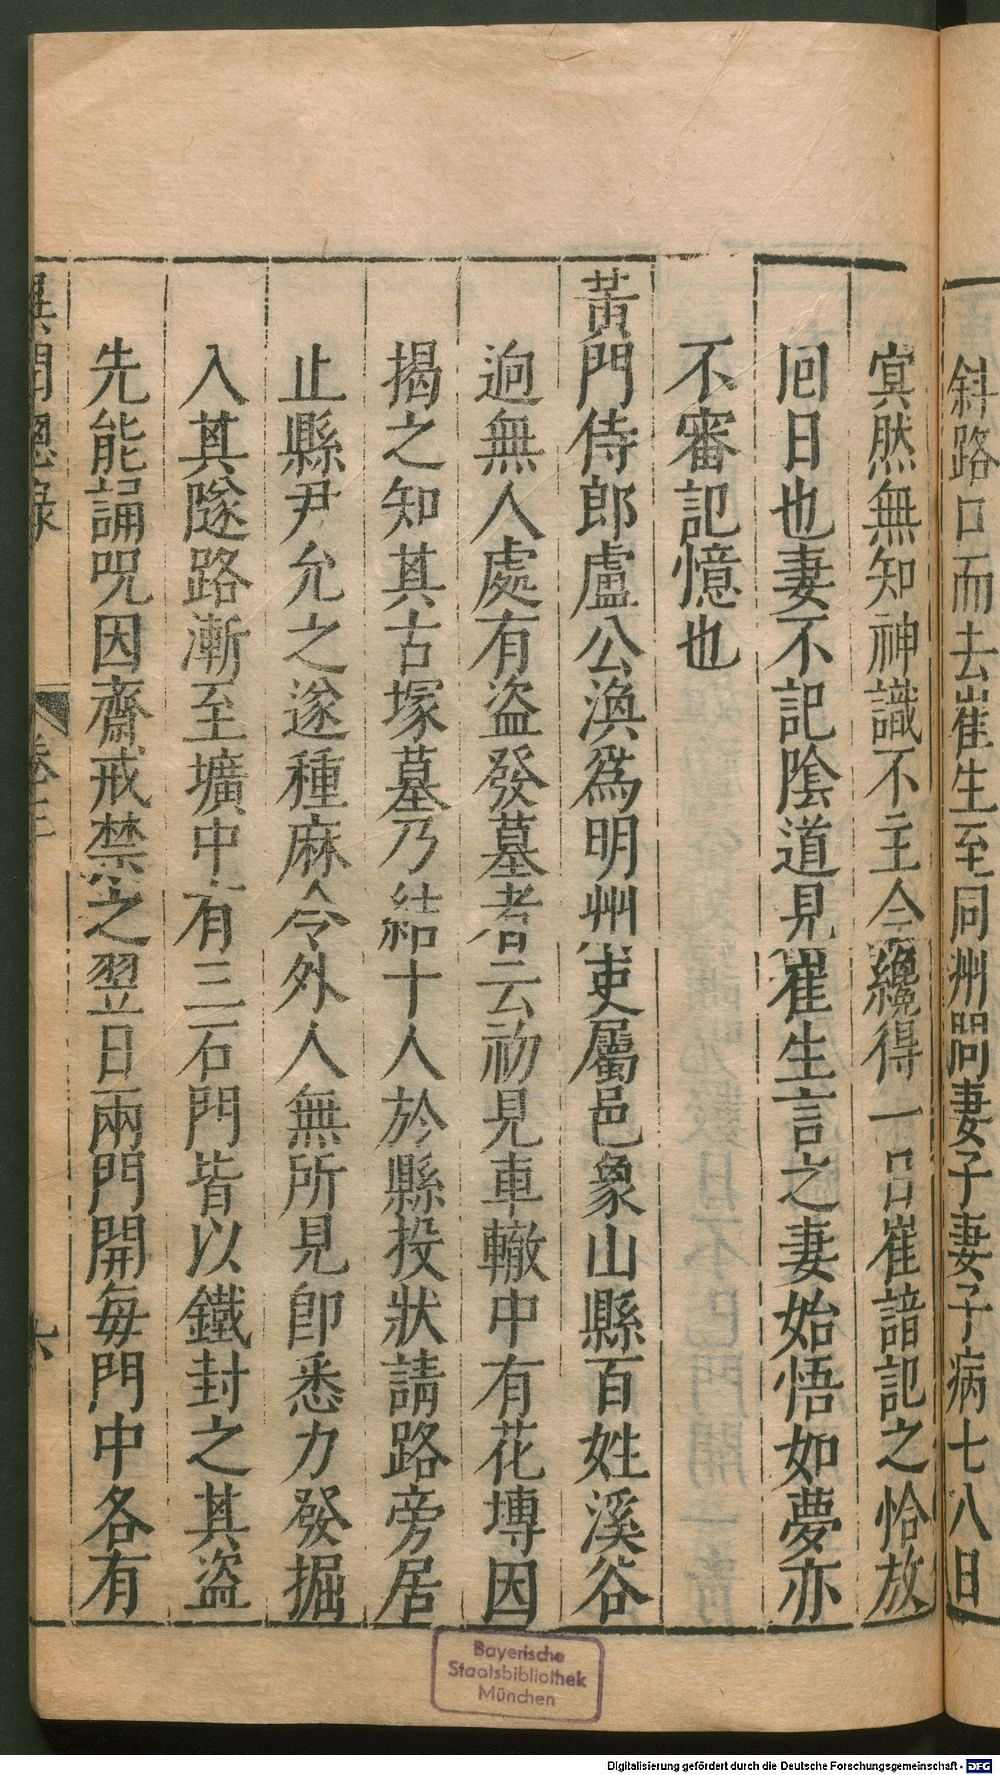 斜路口而去崔生至同州問妻子妻子病七八日
冥然無知神識不主今纔得一日崔諳記之恰放
囘日也妻不記陰道見崔生言之妻始悟如夢亦
不審記憶也
黃門侍郎盧公渙爲明州吏屬邑象山縣百姓溪谷
逈無人處有盜發墓者云初見車轍中有花塼因
揭之知其古塚墓乃結十人於縣投狀請路旁居
止縣尹允之遂種麻令外人無所見卽悉力發掘
入其隧路漸至壙中有三石門皆以鐵封之其盜
先能誦呪因齋戒禁之翌日兩門開每門中各有
異聞總錄
卷三
六
Bayerische
Staatsbibliothek
München
Digitalisierung gefördert durch die Deutsche Forschungsgemeinschaft - DFG